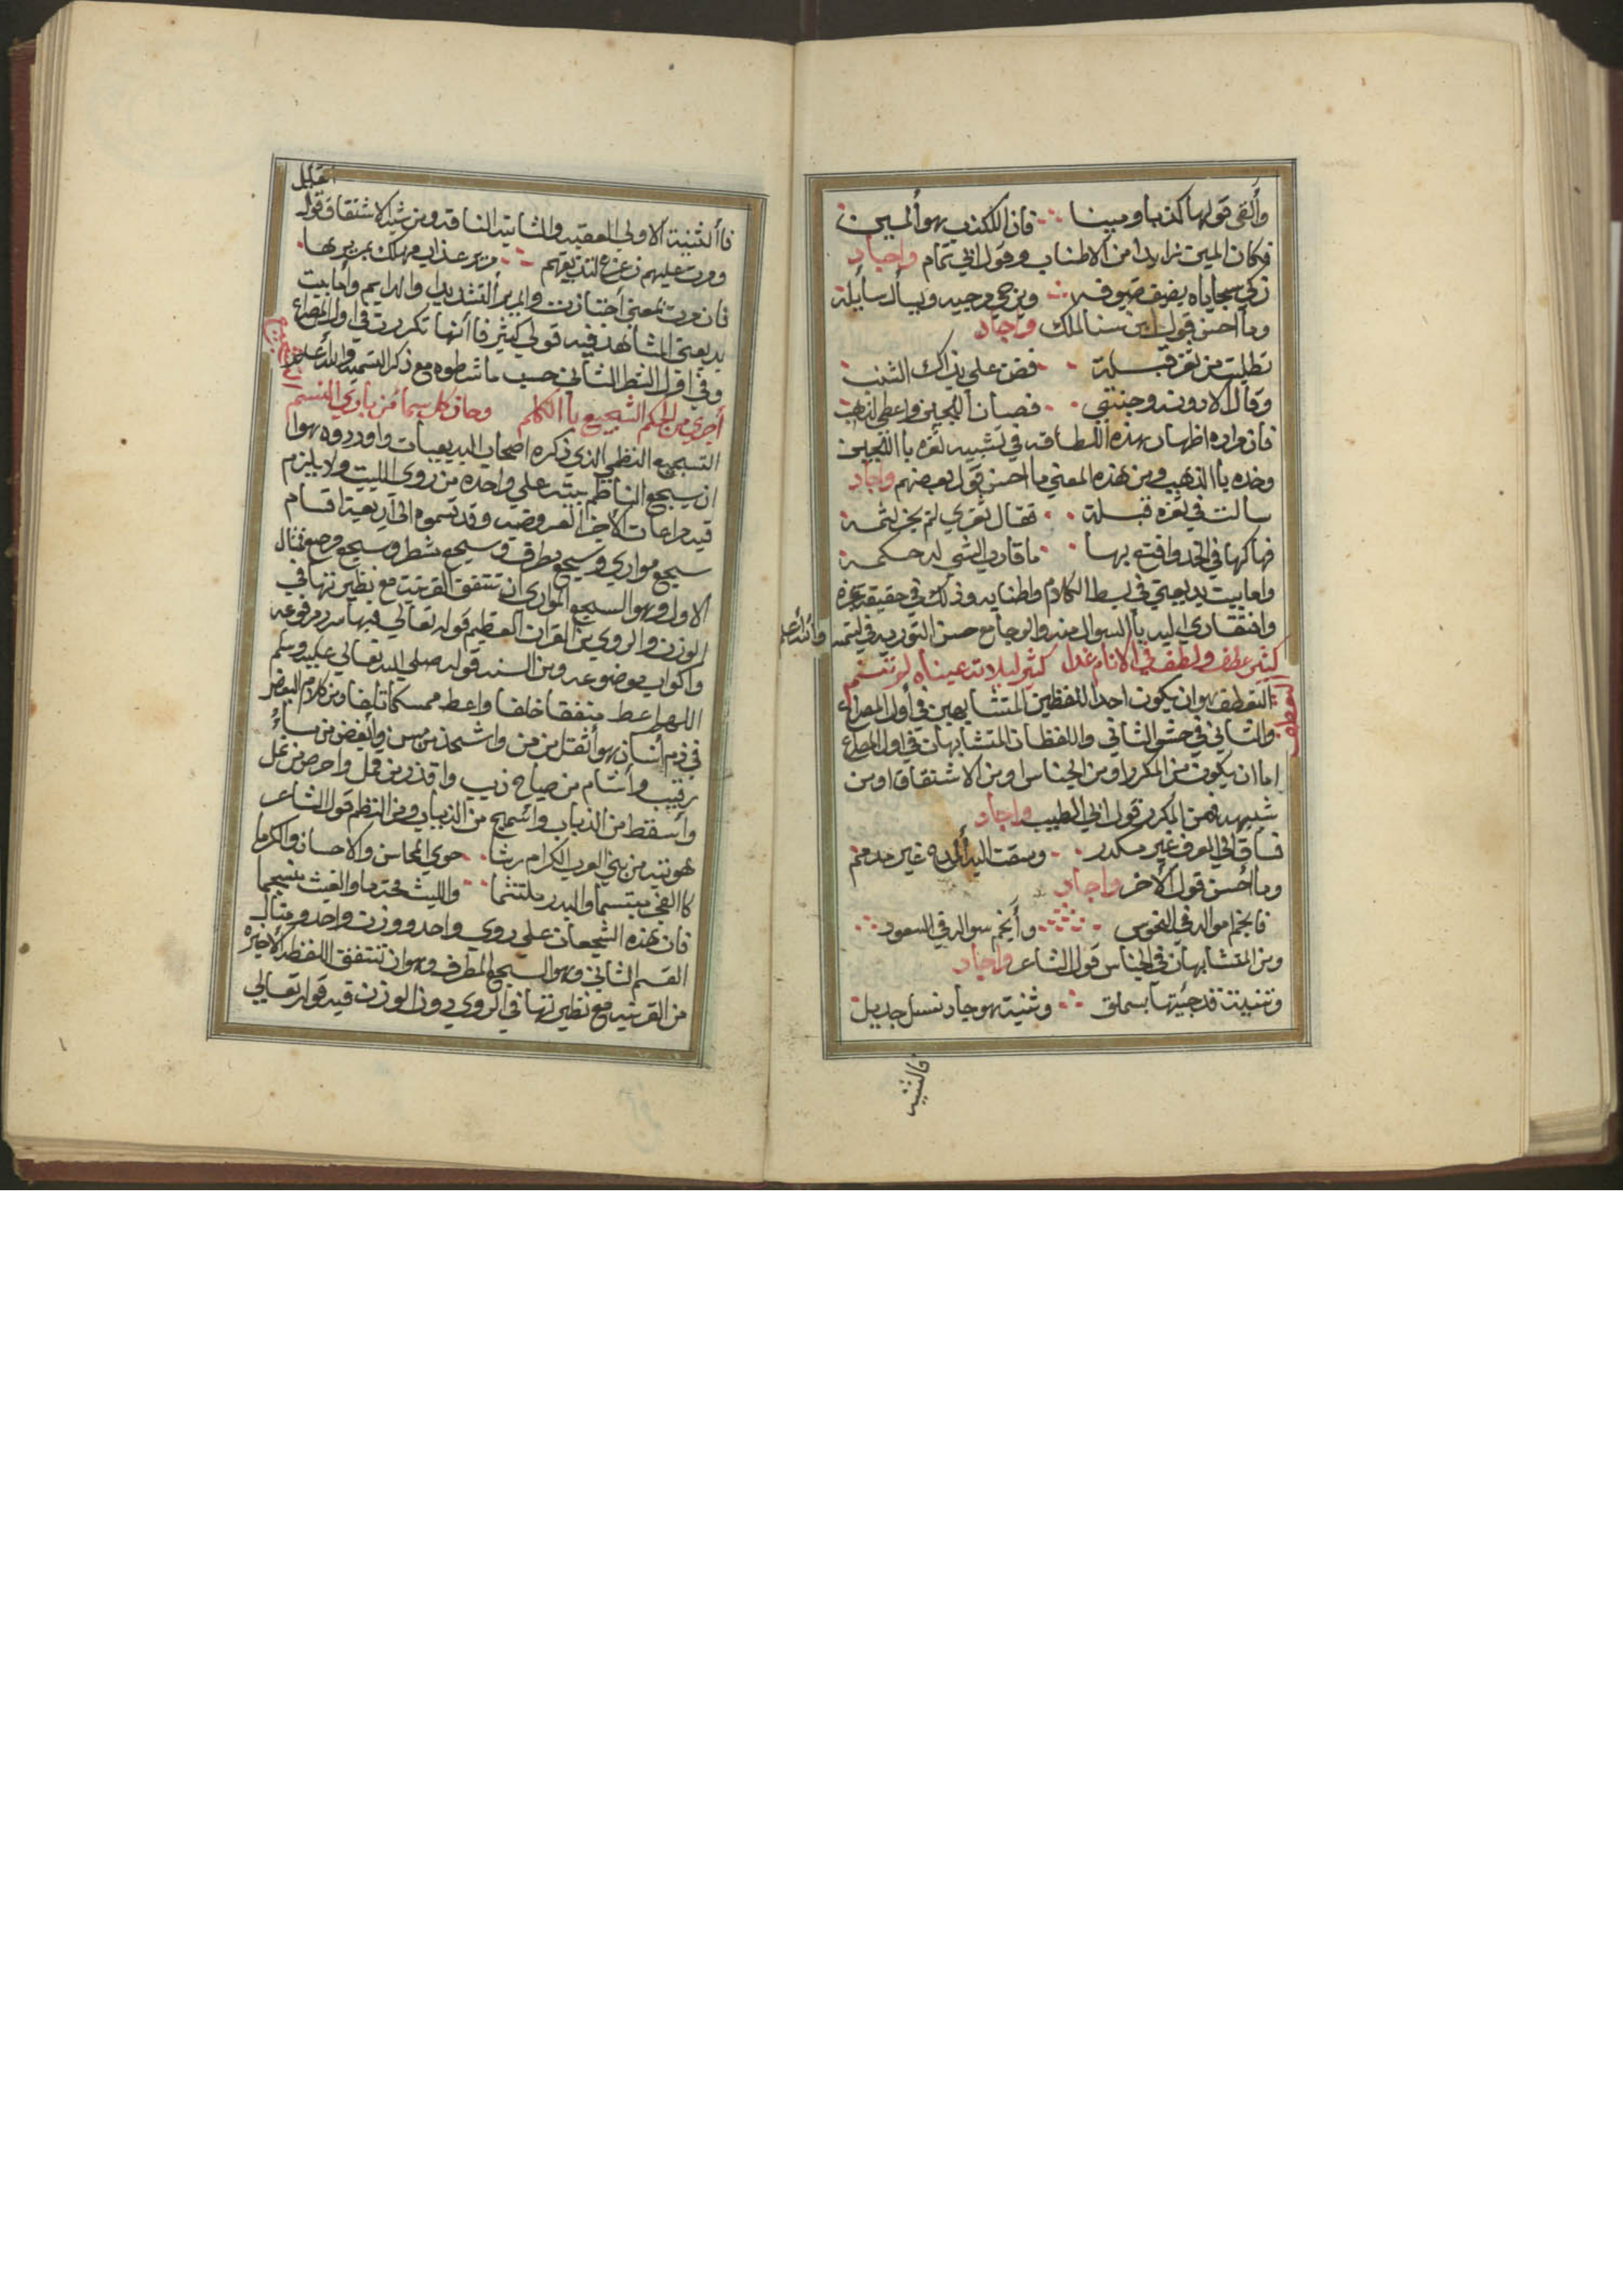 وألقى قولها كذبا ومينا فان الكذب هو المين
فكان المين زايدا من الاطناب وقول ابي تمام واجاد
زكي سجاياه يضيف ضيوفه ويرجى مرجيه ويسأل سايله
وما احسن قول ابن سنا الملك واجاد
تطلبت من ثغر قبلة فضن علي بذاك الشنب
وقال لا دونه وجنتي فصان اللجين واعطى الذهب
فان مراده اظهار هذه اللطافة في تشبيه ثغره باللجين
وخده باالذهب ومن هذه المعني ما احسن قول بعضهم واجاد
سالت في ثغره قبلة فقال ثغري لم يجز لثمه
فهاكها في الخد واقنع بها ما قارب الشي له حكمه
واما بيت بديعيتي في بسط الكلام واطنابه وذلك في حقيقة عزه
وافتقاري اليه باالسوال منه والرجا مع حسن التوريه في لتمه والله اعلم
كثير عطف ولطف في الانام غدا كثير ليلات عيناه لم تنم
التعطف
التعطف هو ان يكون احد اللفظين المتشابهين في أول المصراع
والثاني في حشو الثاني واللفظان المتشابهان في اول المصراع
اما ان يكون من المكرر او من الجناس او من الاشتقاق او من
شبهه فمن المكرر قول ابي الطيب واجاد
فساق الي العرف غير مكدر وسقت اليه الحمد غير مذمم
وما أحسن قول الأخر واجاد
فانجم مواله في النحوس وأنجم سواله في السعود
ومن المتشابهان في الجناس قول الشاعر واجاد
وثنية قد جبتها بسملق وثنية هو جاد نسل جديل
فالثنيه
فاألثنية الاولي العقبه والثانية الناقه ومن شبه الاشتقاق قول القايل
ومرت عليهم زعزع لتذيقهم مرير عذاب مهلك بمريرها
فان مرت بمعني أجتازت والمرير ألتشديد والدايم وأما بيت
بديعيتي الشاهد فيه قولي كثير فاأنها تكررت في اول المصراع
وفي اول الشطر الثاني حسب ما شرطوه مع ذكر التسميه والله أعلم
أجري من الحكم التسجيع باالكلم وحاز كل سما من باري النسم
التسجيع
التسجيع النظمي الذي ذكره اصحاب البديعيات واوردوه هوا
ان يسجع الناظم بيته علي واحده من روي البيت ولا يلزم
فيه مراعات الأجزا العروضيه وقد قسموه الى اربعة اقسام
سجع موازي وسجع مطرف وسجع مشطر وسجع مرصع فمثال
الاول وهو السجع الموازي ان تتفق القرينة مع نظيرتها في
الوزن والروي من القران العظيم قوله تعالي فيها سرر مرفوعه
واكواب موضوعه ومن السنه قوله صلي الله تعالي عليه وسلم
اللهم اعط منفقا خلفا واعط ممسكا تلفا ومن كلام البعض
في ذم أنسان هو أثقل من دين واشحذ من مسن وأبغض من
رقيب وأشام من صياح ذيب واقذر من قمل واحرص من نمل
وأسقط من الذباب واسمج من الذباب ومن النظم قول الشاعر
هويته من بني العرب الكرام رشا حوي المحاسن والاحسان والكرما
كاالفجر مبتسما والبدر ملتثما والليث محتدما والغيث منسجما
فان هذه السجعات علي روي واحد ووزن واحد ومثال
القسم الثاني وهو السجع المطرف وهو ان تتفق اللفظه الأخيره
من القرينه مع نظيرتها في الروي دون الوزن فيه قوله تعالي